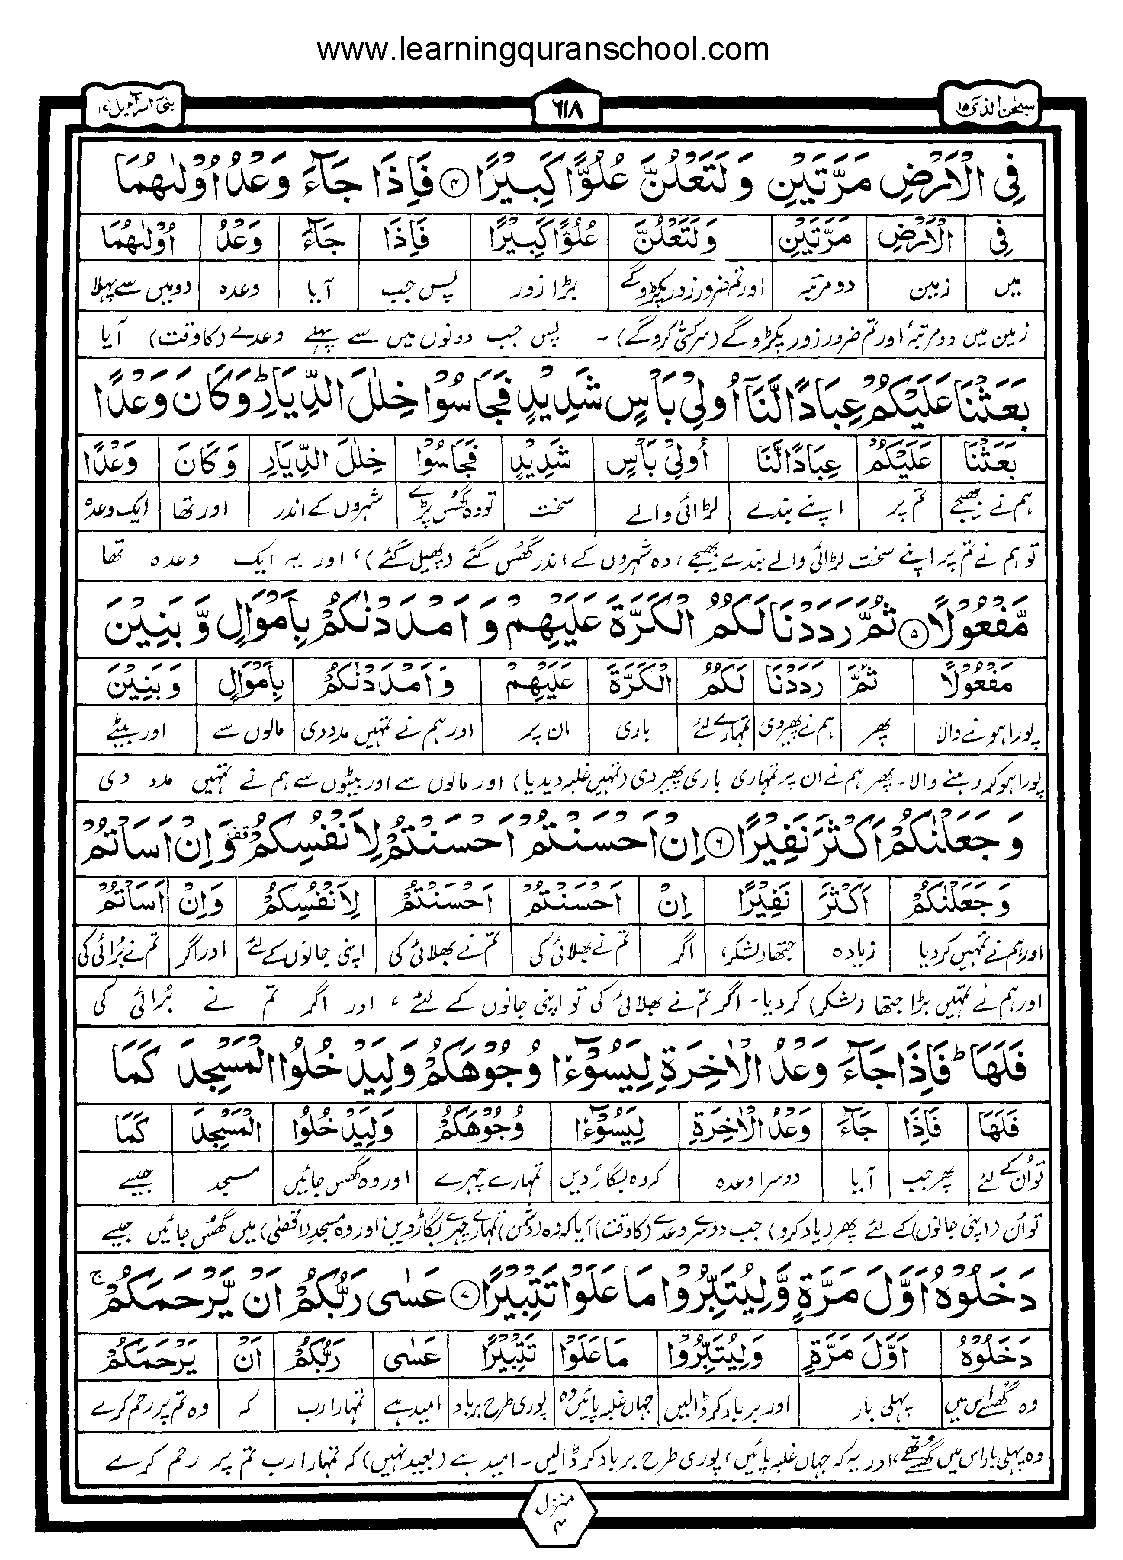 www.learningquranschool.com
سبحٰن الذی ۱۵
٦١٨
بنی اسرآءیل ۱۷
فِی الْاَرْضِ مَرَّتَیْنِ وَ لَتَعْلُنَّ عُلُوًّا كَبِیْرًا ۴ فَاِذَا جَآءَ وَعْدُ اُوْلٰىهُمَا
فِی الْاَرْضِ مَرَّتَیْنِ وَلَتَعْلُنَّ عُلُوًّا كَبِیْرًا فَاِذَا جَآءَ وَعْدُ اُوْلٰىهُمَا
میں زمین دو مرتبہ اور تم ضرور زور پکڑو گے بڑا زور پس جب آیا وعدہ دو میں سے پہلا
زمین میں دو مرتبہ اور تم ضرور زور پکڑو گے (سرکشی کرو گے) ۔ پس جب دونوں میں سے پہلے وعدے (کا وقت) آیا
بَعَثْنَا عَلَیْكُمْ عِبَادًا لَّنَاۤ اُولِیْ بَاْسٍ شَدِیْدٍ فَجَاسُوْا خِلٰلَ الدِّیَارِ ؕ وَ كَانَ وَعْدًا
بَعَثْنَا عَلَیْكُمْ عِبَادًا لَّنَا اُولِیْ بَاْسٍ شَدِیْدٍ فَجَاسُوْا خِلٰلَ الدِّیَارِ وَ كَانَ وَعْدًا
ہم نے بھیجے تم پر اپنے بندے لڑائی والے سخت تو وہ گھس پڑے شہروں کے اندر اور تھا ایک وعدہ
تو ہم نے تم پر اپنے سخت لڑائی والے بندے بھیجے، وہ شہروں کے اندر گھس گئے (پھیل گئے)، اور یہ ایک وعدہ تھا
مَّفْعُوْلًا ۵ ثُمَّ رَدَدْنَا لَكُمُ الْكَرَّةَ عَلَیْهِمْ وَ اَمْدَدْنٰكُمْ بِاَمْوَالٍ وَّ بَنِیْنَ
مَفْعُوْلًا ثُمَّ رَدَدْنَا لَكُمُ الْكَرَّةَ عَلَیْهِمْ وَ اَمْدَدْنٰكُمْ بِاَمْوَالٍ وَ بَنِیْنَ
پورا ہونے والا پھر ہم نے پھیر دی تمہارے لئے باری ان پر اور ہم نے تمہیں مدد دی مالوں سے اور بیٹے
پورا ہو کر رہنے والا۔ پھر ہم نے ان پر تمہاری باری پھیر دی (تمہیں غلبہ دیدیا) اور مالوں سے اور بیٹوں سے ہم نے تمہیں مدد دی
وَ جَعَلْنٰكُمْ اَكْثَرَ نَفِیْرًا ۶ اِنْ اَحْسَنْتُمْ اَحْسَنْتُمْ لِاَنْفُسِكُمْ وَ اِنْ اَسَاْتُمْ
وَ جَعَلْنٰكُمْ اَكْثَرَ نَفِیْرًا اِنْ اَحْسَنْتُمْ اَحْسَنْتُمْ لِاَنْفُسِكُمْ وَاِنْ اَسَاْتُمْ
اور ہم نے تمہیں کر دیا زیادہ جتھا (لشکر) اگر تم نے بھلائی کی تم نے بھلائی کی اپنی جانوں کے لئے اور اگر تم نے برائی کی
اور ہم نے تمہیں بڑا جتھا (لشکر) کر دیا۔ اگر تم نے بھلائی کی تو اپنی جانوں کے لئے، اور اگر تم نے برائی کی
فَلَهَا ؕ فَاِذَا جَآءَ وَعْدُ الْاٰخِرَةِ لِیَسُوْٓءٗا وُجُوْهَكُمْ وَ لِیَدْخُلُوا الْمَسْجِدَ كَمَا
فَلَهَا فَاِذَا جَآءَ وَعْدُ الْاٰخِرَةِ لِیَسُوْٓءٗا وُجُوْهَكُمْ وَلِیَدْخُلُوا الْمَسْجِدَ كَمَا
تو ان کے لئے پھر جب آیا دوسرا وعدہ کہ وہ بگاڑ دیں تمہارے چہرے اور وہ گھس جائیں مسجد جیسے
تو ان (اپنی جانوں) کے لئے پھر (یاد کرو) جب دوسرے وعدے (کا وقت) آیا کہ وہ (دشمن) تمہارے چہرے بگاڑ دیں اور وہ مسجد (اقصٰی) میں گھس جائیں جیسے
دَخَلُوْهُ اَوَّلَ مَرَّةٍ وَّ لِیُتَبِّرُوْا مَا عَلَوْا تَتْبِیْرًا ۷ عَسٰى رَبُّكُمْ اَنْ یَّرْحَمَكُمْ ۚ
دَخَلُوْهُ اَوَّلَ مَرَّةٍ وَ لِیُتَبِّرُوْا مَا عَلَوْا تَتْبِیْرًا عَسٰى رَبُّكُمْ اَنْ یَرْحَمَكُمْ
وہ گھسے اس میں پہلی بار اور برباد کر ڈالیں جہاں غلبہ پائیں وہ پوری طرح برباد امید ہے تمہارا رب کہ وہ تم پر رحم کرے
وہ پہلی بار اس میں گھسے تھے، اور یہ کہ جہاں غلبہ پائیں، پوری طرح برباد کر ڈالیں۔ امید ہے (بعید نہیں) کہ تمہارا رب تم پر رحم کرے
منزل ۴